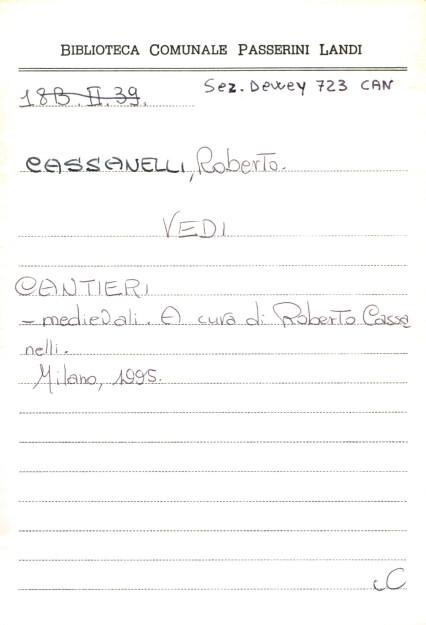 BIBLIOTECA COMUNALE PASSERINI LANDI
18B.II.39. Sez. Dewey 723 CAN
CASSANELLI, Roberto.
VEDI
CANTIERI
- medievali. A cura di Roberto Cassa
nelli.
Milano, 1995.